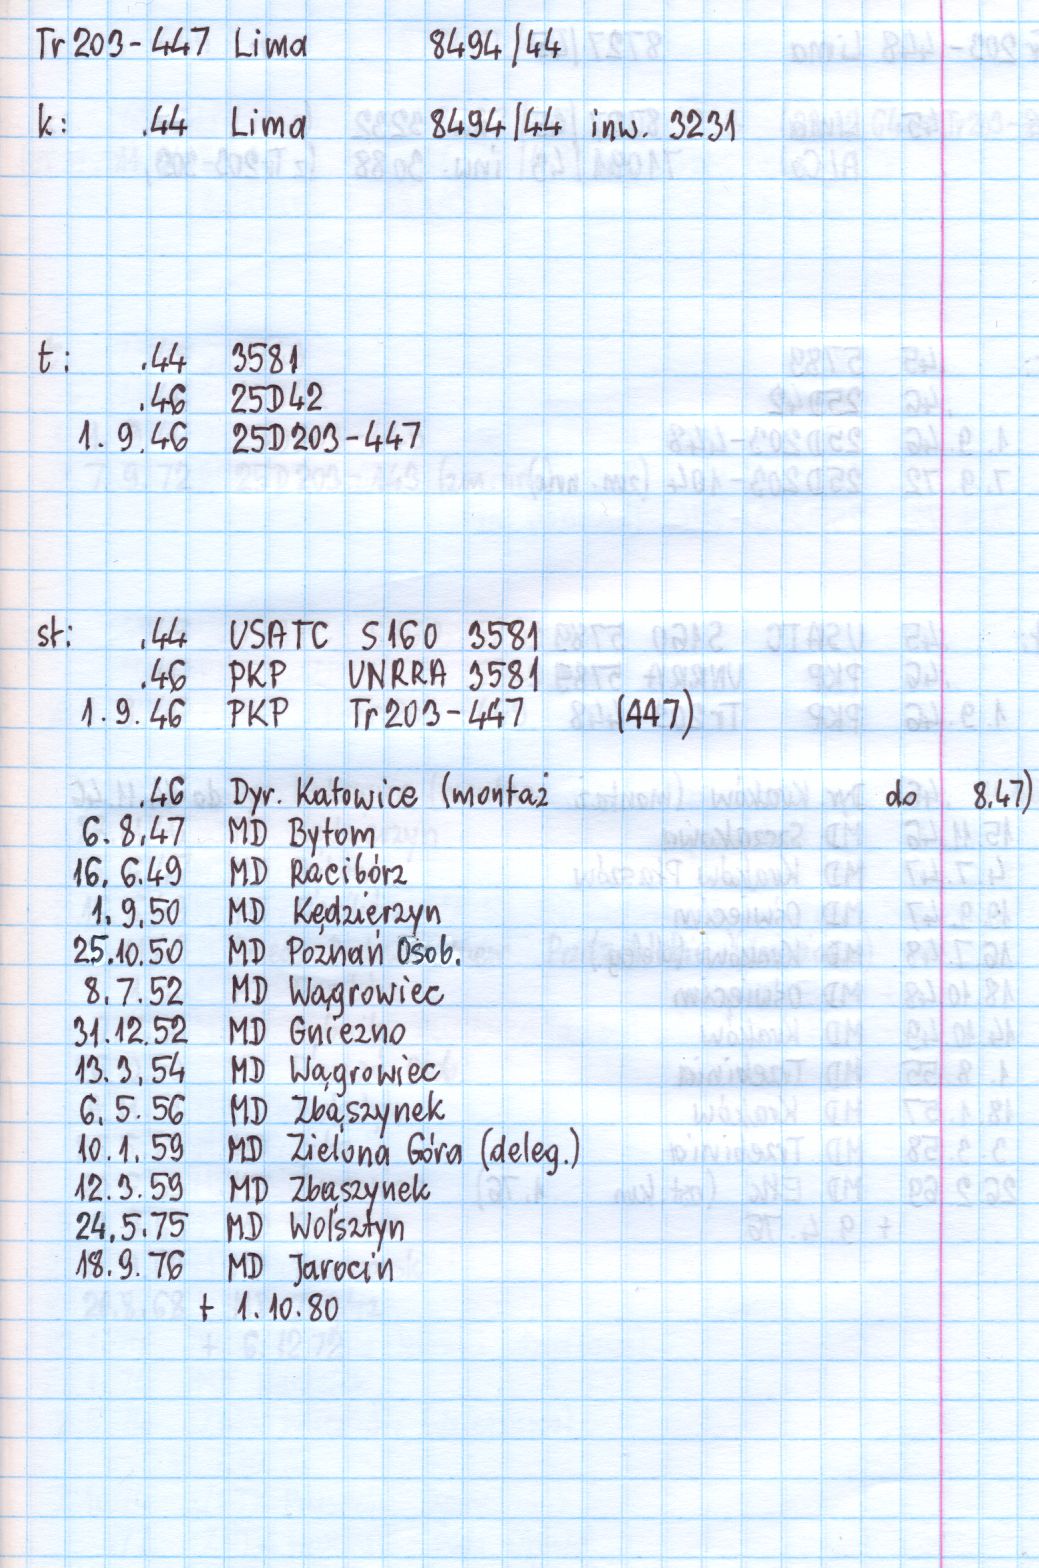 Tr203-447 Lima 8494/44
k: .44 Lima 8494/44 inw. 3231
t: .44 3581
.46 25D42
1.9.46 25D203-447
st: .44 USATC S160 3581
.46 PKP UNRRA 3581
1.9.46 PKP Tr203-447 (447)
.46 Dyr. Katowice (montaż do 8.47)
6.8.47 MD Bytom
16.6.49 MD Racibórz
1.9.50 MD Kędzierzyn
25.10.50 MD Poznań Osob.
8.7.52 MD Wągrowiec
31.12.52 MD Gniezno
13.3.54 MD Wągrowiec
6.5.56 MD Zbąszynek
10.1.59 MD Zielona Góra (deleg.)
12.3.59 MD Zbąszynek
24.5.75 MD Wolsztyn
18.9.76 MD Jarocin
+ 1.10.80